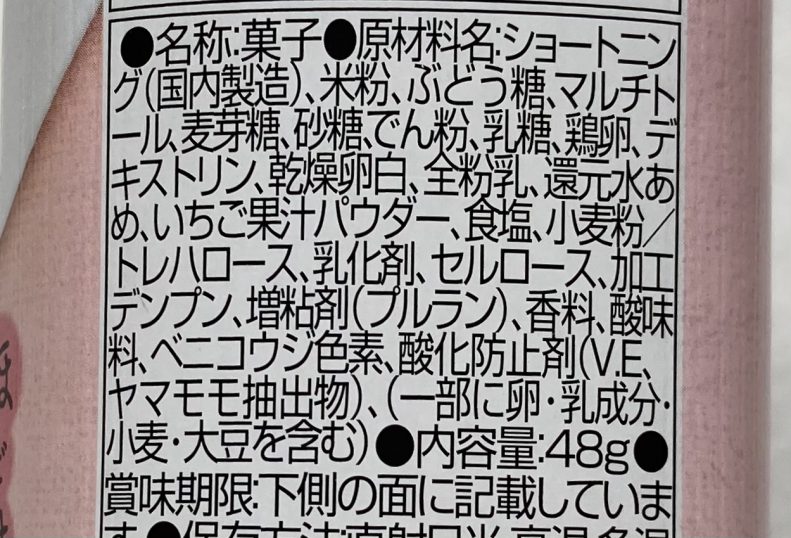 ●名称:菓子●原材料名:ショートニン
グ(国内製造)、米粉、ぶどう糖、マルチト
ール、麦芽糖、砂糖、でん粉、乳糖、鶏卵、デ
キストリン、乾燥卵白、全粉乳、還元水あ
め、いちご果汁パウダー、食塩、小麦粉／
トレハロース、乳化剤、セルロース、加工
デンプン、増粘剤(プルラン)、香料、酸味
料、ベニコウジ色素、酸化防止剤(V.E、
ヤマモモ抽出物)、(一部に卵・乳成分・
小麦・大豆を含む)●内容量:48g●
賞味期限:下側の面に記載していま
す●保存方法:直射日光、高温多湿